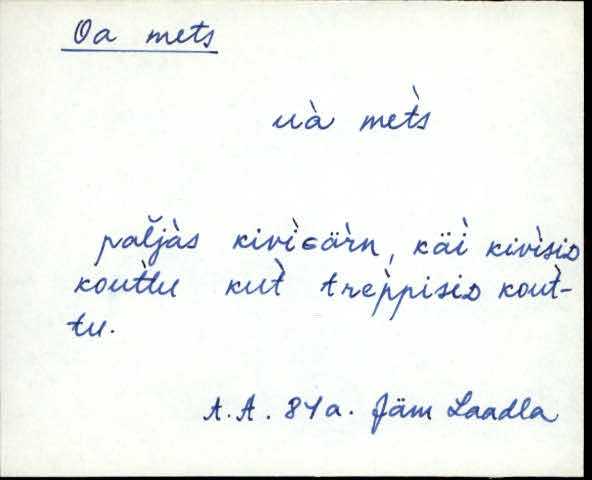 Oa mets
uà met̀s
pal̆jàs kivìɢär̀n, käì kivìsiᴅ
kout̀tu kut̀ trep̀pisiᴅ kout̀-
tu.
A.A. 84a. Jäm Laadla